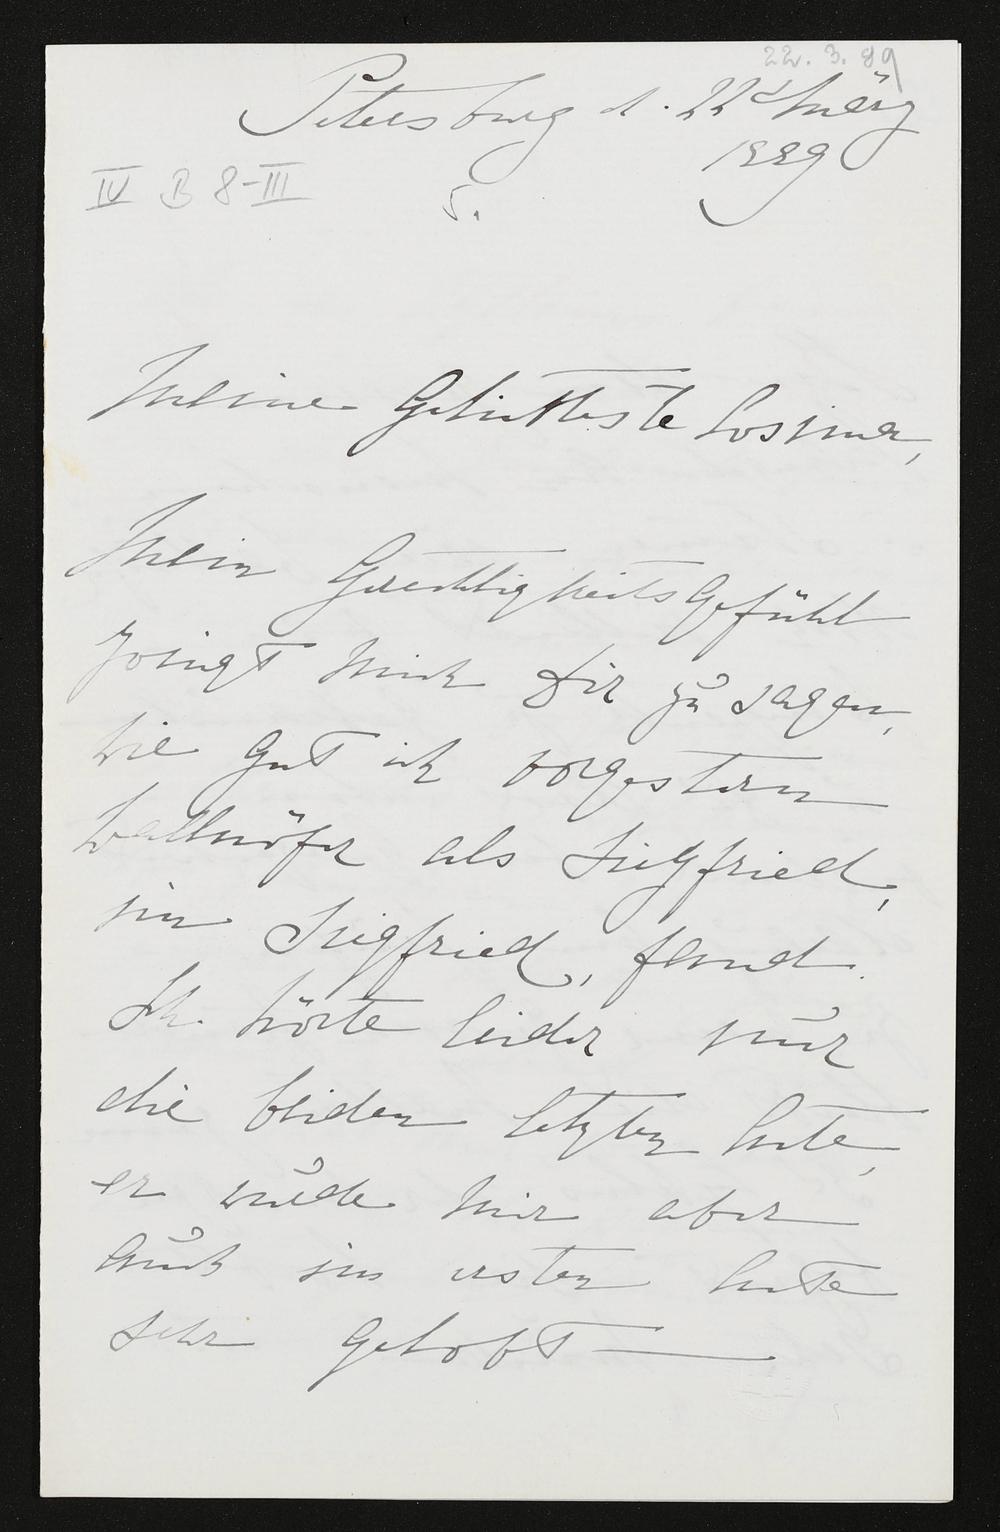 22. 3. 89
Petersburg d. 22ᵗ März
1889
IV B 8-III
5.
Meine Geliebteste Cosima,
Mein GerechtigkeitsGefühl
zwingt mich Dir zu sagen,
wie gut ich vorgestern
Wallnöfer als Siegfried,
im Siegfried, fand.
Ich hörte leider nur
die beiden letzten Acte,
er wurde mir aber
auch im ersten Acte
sehr gelobt —